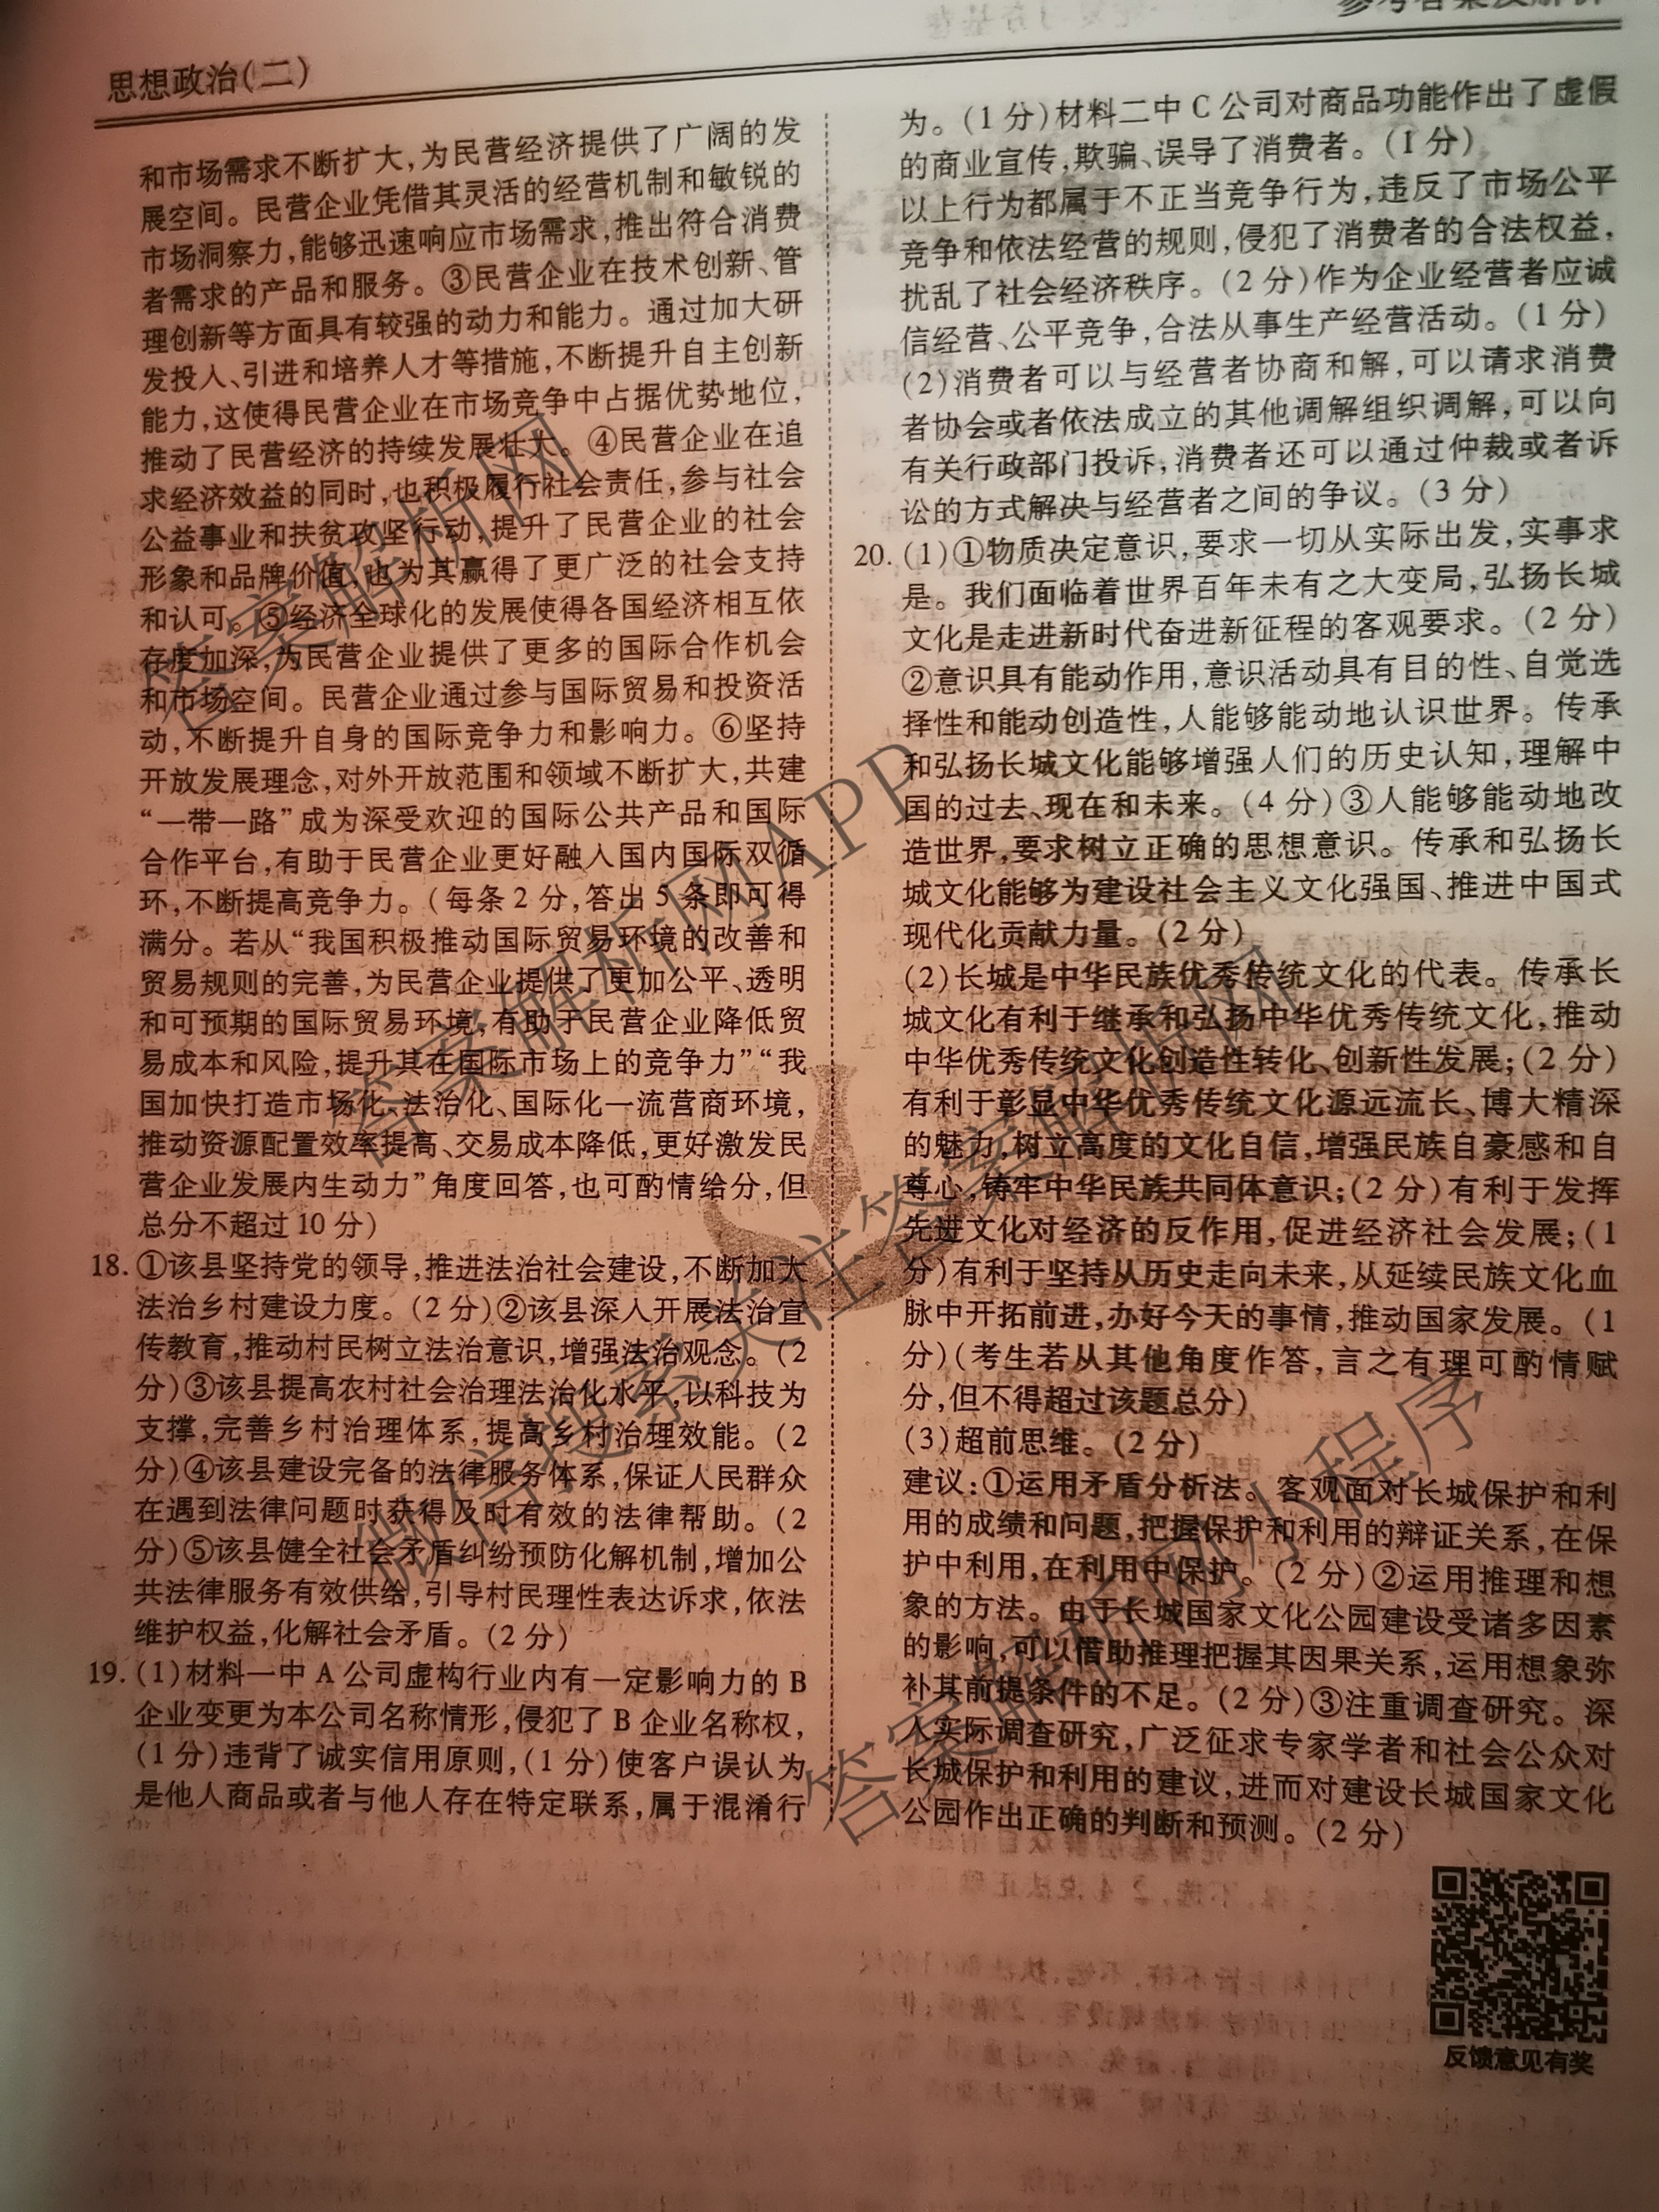 参考答案及解析
思想政治(二)
和市场需求不断扩大,为民营经济提供了广阔的发
展空间。民营企业凭借其灵活的经营机制和敏锐的
市场洞察力,能够迅速响应市场需求,推出符合消费
者需求的产品和服务。③民营企业在技术创新、管
理创新等方面具有较强的动力和能力。通过加大研
发投入、引进和培养人才等措施,不断提升自主创新
能力,这使得民营企业在市场竞争中占据优势地位,
推动了民营经济的持续发展壮大。④民营企业在追
求经济效益的同时,也积极履行社会责任,参与社会
公益事业和扶贫攻坚行动,提升了民营企业的社会
形象和品牌价值,也为其赢得了更广泛的社会支持
和认可。⑤经济全球化的发展使得各国经济相互依
存度加深,为民营企业提供了更多的国际合作机会
和市场空间。民营企业通过参与国际贸易和投资活
动,不断提升自身的国际竞争力和影响力。⑥坚持
开放发展理念,对外开放范围和领域不断扩大,共建
“一带一路”成为深受欢迎的国际公共产品和国际
合作平台,有助于民营企业更好融入国内国际双循
环,不断提高竞争力。(每条2分,答出5条即可得
满分。若从“我国积极推动国际贸易环境的改善和
贸易规则的完善,为民营企业提供了更加公平、透明
和可预期的国际贸易环境,有助于民营企业降低贸
易成本和风险,提升其在国际市场上的竞争力”“我
国加快打造市场化、法治化、国际化一流营商环境,
推动资源配置效率提高、交易成本降低,更好激发民
营企业发展内生动力”角度回答,也可酌情给分,但
总分不超过10分)
18.①该县坚持党的领导,推进法治社会建设,不断加大
法治乡村建设力度。(2分)②该县深入开展法治宣
传教育,推动村民树立法治意识,增强法治观念。(2
分)③该县提高农村社会治理法治化水平,以科技为
支撑,完善乡村治理体系,提高乡村治理效能。(2
分)④该县建设完备的法律服务体系,保证人民群众
在遇到法律问题时获得及时有效的法律帮助。(2
分)⑤该县健全社会矛盾纠纷预防化解机制,增加公
共法律服务有效供给,引导村民理性表达诉求,依法
维护权益,化解社会矛盾。(2分)
19.(1)材料一中A公司虚构行业内有一定影响力的B
企业变更为本公司名称情形,侵犯了B企业名称权,
(1分)违背了诚实信用原则,(1分)使客户误认为
是他人商品或者与他人存在特定联系,属于混淆行
为。(1分)材料二中C公司对商品功能作出了虚假
的商业宣传,欺骗、误导了消费者。(1分)
以上行为都属于不正当竞争行为,违反了市场公平
竞争和依法经营的规则,侵犯了消费者的合法权益,
扰乱了社会经济秩序。(2分)作为企业经营者应诚
信经营、公平竞争,合法从事生产经营活动。(1分)
(2)消费者可以与经营者协商和解,可以请求消费
者协会或者依法成立的其他调解组织调解,可以向
有关行政部门投诉,消费者还可以通过仲裁或者诉
讼的方式解决与经营者之间的争议。(3分)
20.(1)①物质决定意识,要求一切从实际出发,实事求
是。我们面临着世界百年未有之大变局,弘扬长城
文化是走进新时代奋进新征程的客观要求。(2分)
②意识具有能动作用,意识活动具有目的性、自觉选
择性和能动创造性,人能够能动地认识世界。传承
和弘扬长城文化能够增强人们的历史认知,理解中
国的过去、现在和未来。(4分)③人能够能动地改
造世界,要求树立正确的思想意识。传承和弘扬长
城文化能够为建设社会主义文化强国、推进中国式
现代化贡献力量。(2分)
(2)长城是中华民族优秀传统文化的代表。传承长
城文化有利于继承和弘扬中华优秀传统文化,推动
中华优秀传统文化创造性转化、创新性发展;(2分)
有利于彰显中华优秀传统文化源远流长、博大精深
的魅力,树立高度的文化自信,增强民族自豪感和自
尊心,铸牢中华民族共同体意识;(2分)有利于发挥
先进文化对经济的反作用,促进经济社会发展;(1
分)有利于坚持从历史走向未来,从延续民族文化血
脉中开拓前进,办好今天的事情,推动国家发展。(1
分)(考生若从其他角度作答,言之有理可酌情赋
分,但不得超过该题总分)
(3)超前思维。(2分)
建议:①运用矛盾分析法。客观面对长城保护和利
用的成绩和问题,把握保护和利用的辩证关系,在保
护中利用,在利用中保护。(2分)②运用推理和想
象的方法。由于长城国家文化公园建设受诸多因素
的影响,可以借助推理把握其因果关系,运用想象弥
补其前提条件的不足。(2分)③注重调查研究。深
入实际调查研究,广泛征求专家学者和社会公众对
长城保护和利用的建议,进而对建设长城国家文化
公园作出正确的判断和预测。(2分)
反馈意见有奖
答案解析网
答案解析网APP
微信搜索关注答案解析网
答案解析网小程序